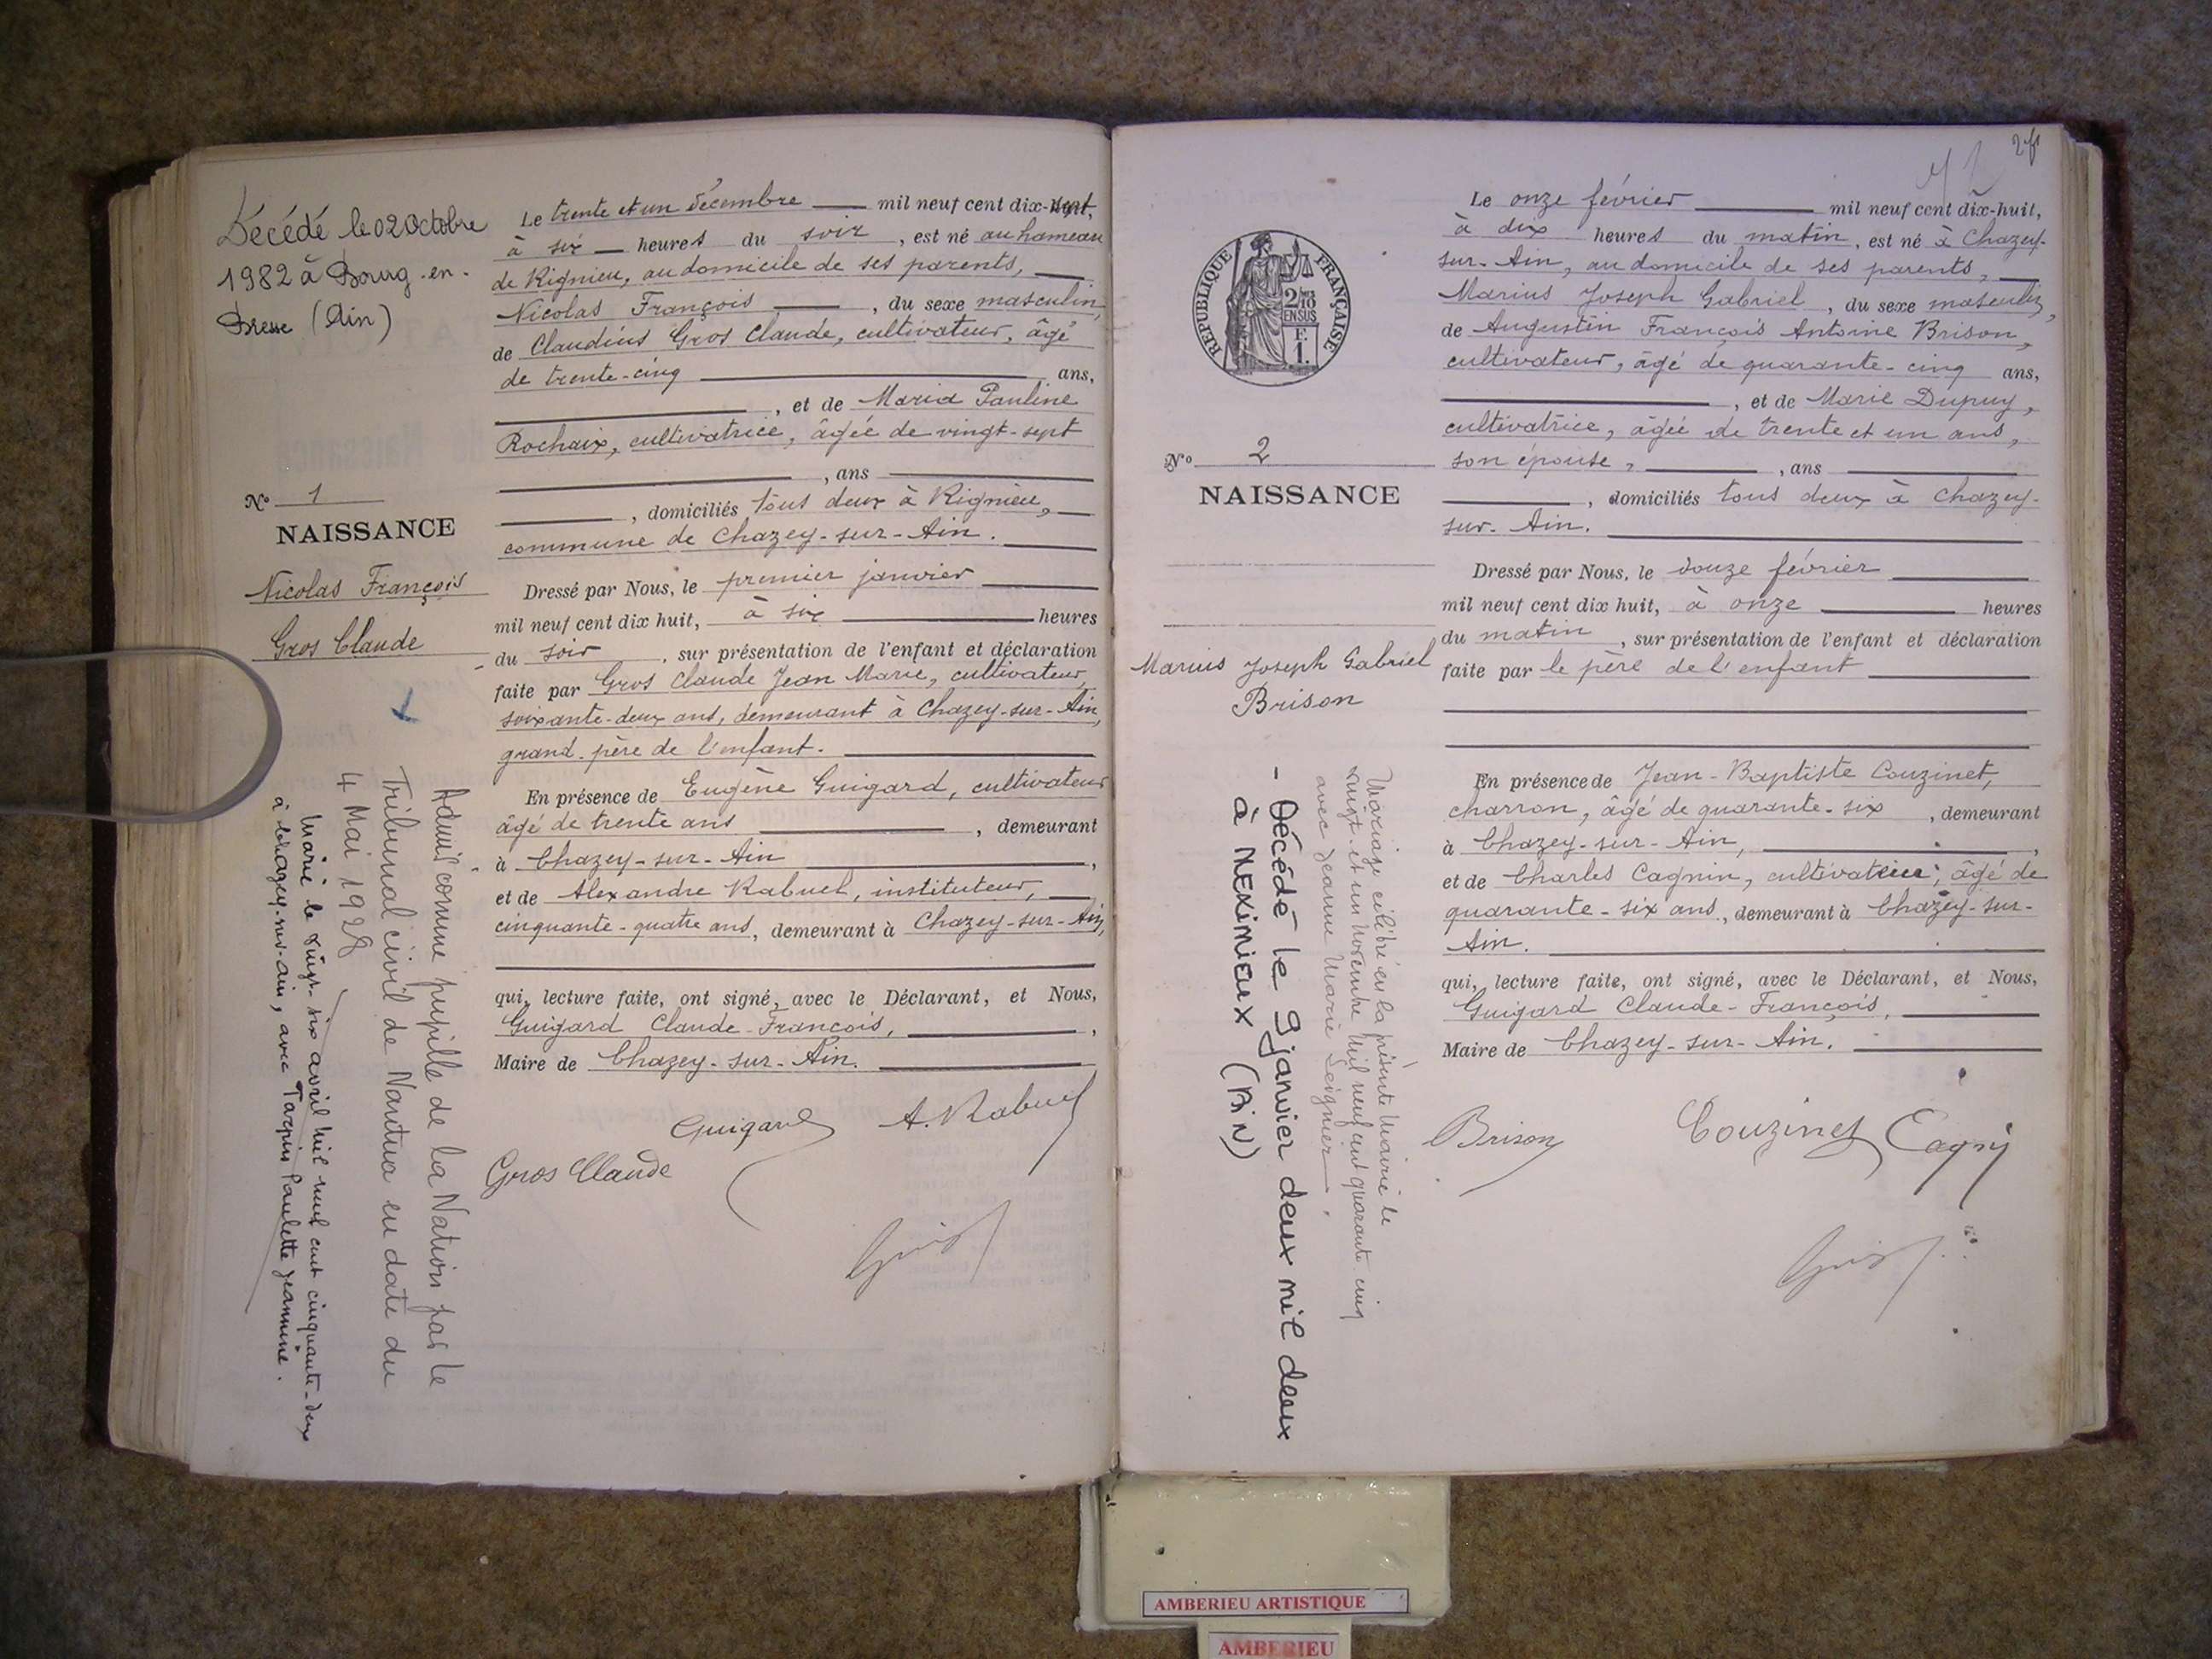 Décédé le 02 Octobre
1982 à Bourg-en-
Bresse (Ain)
N° 1
NAISSANCE
Nicolas François
Gros Claude
Le trente et un décembre mil neuf cent dix-sept,
à six heures du soir, est né au hameau
de Rignieu, au domicile de ses parents,
Nicolas François, du sexe masculin,
de Claudius Gros Claude, cultivateur, âgé
de trente-cinq ans,
, et de Maria Pauline
Rochaix, cultivatrice, âgée de vingt-sept
, ans
, domiciliés tous deux à Rignieu,
commune de Chazey-sur-Ain.
Dressé par Nous, le premier janvier
mil neuf cent dix huit, à six heures
du soir, sur présentation de l'enfant et déclaration
faite par Gros Claude Jean Marie, cultivateur,
soixante-deux ans, demeurant à Chazey-sur-Ain,
grand-père de l'enfant.
En présence de Eugène Guigard, cultivateur
âgé de trente ans, demeurant
à Chazey-sur-Ain,
et de Alexandre Rabuel, instituteur,
cinquante-quatre ans, demeurant à Chazey-sur-Ain,
qui, lecture faite, ont signé, avec le Déclarant, et Nous,
Guigard Claude-François,
Maire de Chazey-sur-Ain.
Guigard
A. Rabuel
Gros Claude
Admis comme pupille de la Nation par le
Tribunal civil de Nantua en date du
4 Mai 1928
Marié le vingt-six avril mil neuf cent cinquante-deux
à Chazey-sur-Ain, avec Tarpin Paulette Jeannine.
RÉPUBLIQUE FRANÇAISE
2/10
EN SUS
F.
1.
N° 2
NAISSANCE
Marius Joseph Gabriel
Brison
Le onze février mil neuf cent dix-huit,
à dix heures du matin, est né à Chazey-
sur-Ain, au domicile de ses parents,
Marius Joseph Gabriel, du sexe masculin,
de Augustin François Antoine Brison,
cultivateur, âgé de quarante-cinq ans,
, et de Marie Dupuy,
cultivatrice, âgée de trente et un ans,
son épouse, , ans
, domiciliés tous deux à Chazey-
sur-Ain.
Dressé par Nous, le douze février
mil neuf cent dix huit, à onze heures
du matin, sur présentation de l'enfant et déclaration
faite par le père de l'enfant
En présence de Jean-Baptiste Couzinet,
charron, âgé de quarante-six, demeurant
à Chazey-sur-Ain,
et de Charles Cagnin, cultivateur, âgé de
quarante-six ans, demeurant à Chazey-sur-
Ain.
qui, lecture faite, ont signé, avec le Déclarant, et Nous,
Guigard Claude-François,
Maire de Chazey-sur-Ain.
Brison
Couzinet
Mariage célébré en la présente Mairie le
vingt-et-un novembre mil neuf cent quarante cinq
avec Jeanne Marie Seignier.
- Décédé le 9 janvier deux mil deux
à MEXIMIEUX (AIN)
AMBERIEU ARTISTIQUE
AMBERIEU